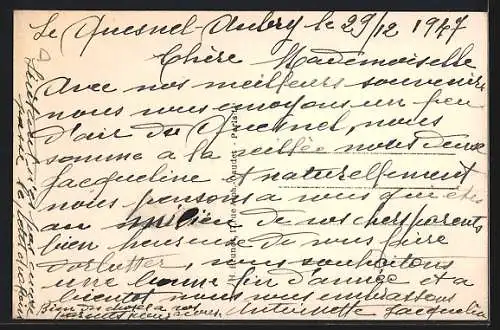 Le Quesnel-Aubry le 29/12 1947
Chère Mademoiselle
Avec nos meilleurs souvenirs
nous vous envoyons un peu
d'air du Quesnel, nous
somme a la veillée nous deux
Jacqueline et naturellement
nous pensons a vous qui êtes
au milieu de nos chers parents
bien heureuse de vous faire
dorlotter, nous souhaitons
une bonne fin d'année et a
bientôt nous vous embrassons
Antoinette Jacqueline
Bien